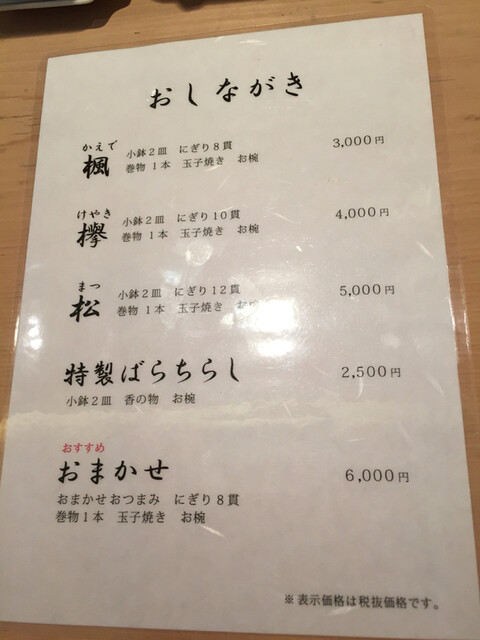 おしながき
かえで
楓 小鉢２皿 にぎり８貫 3,000円
巻物１本 玉子焼き お椀
けやき
欅 小鉢２皿 にぎり１０貫 4,000円
巻物１本 玉子焼き お椀
まつ
松 小鉢２皿 にぎり１２貫 5,000円
巻物１本 玉子焼き お椀
特製ばらちらし 2,500円
小鉢２皿 香の物 お椀
おすすめ
おまかせ 6,000円
おまかせおつまみ にぎり８貫
巻物１本 玉子焼き お椀
※表示価格は税抜価格です。